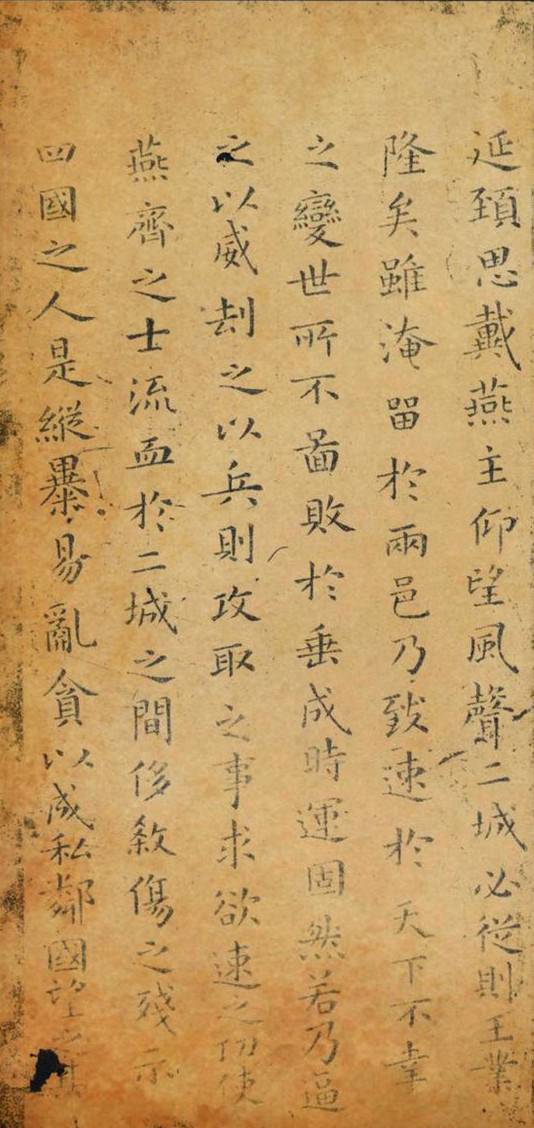 延頚思戴燕主仰望風聲二城必從則王業
隆矣雖淹留於兩邑乃致速於天下不幸
之變世所不啚敗於垂成時運固然若乃逼
之以威刧之以兵則攻取之事求欲速之功使
燕齊之士流血於二城之間侈敘傷之殘示
四國之人是縱暴易亂貪以成私鄰國望之其